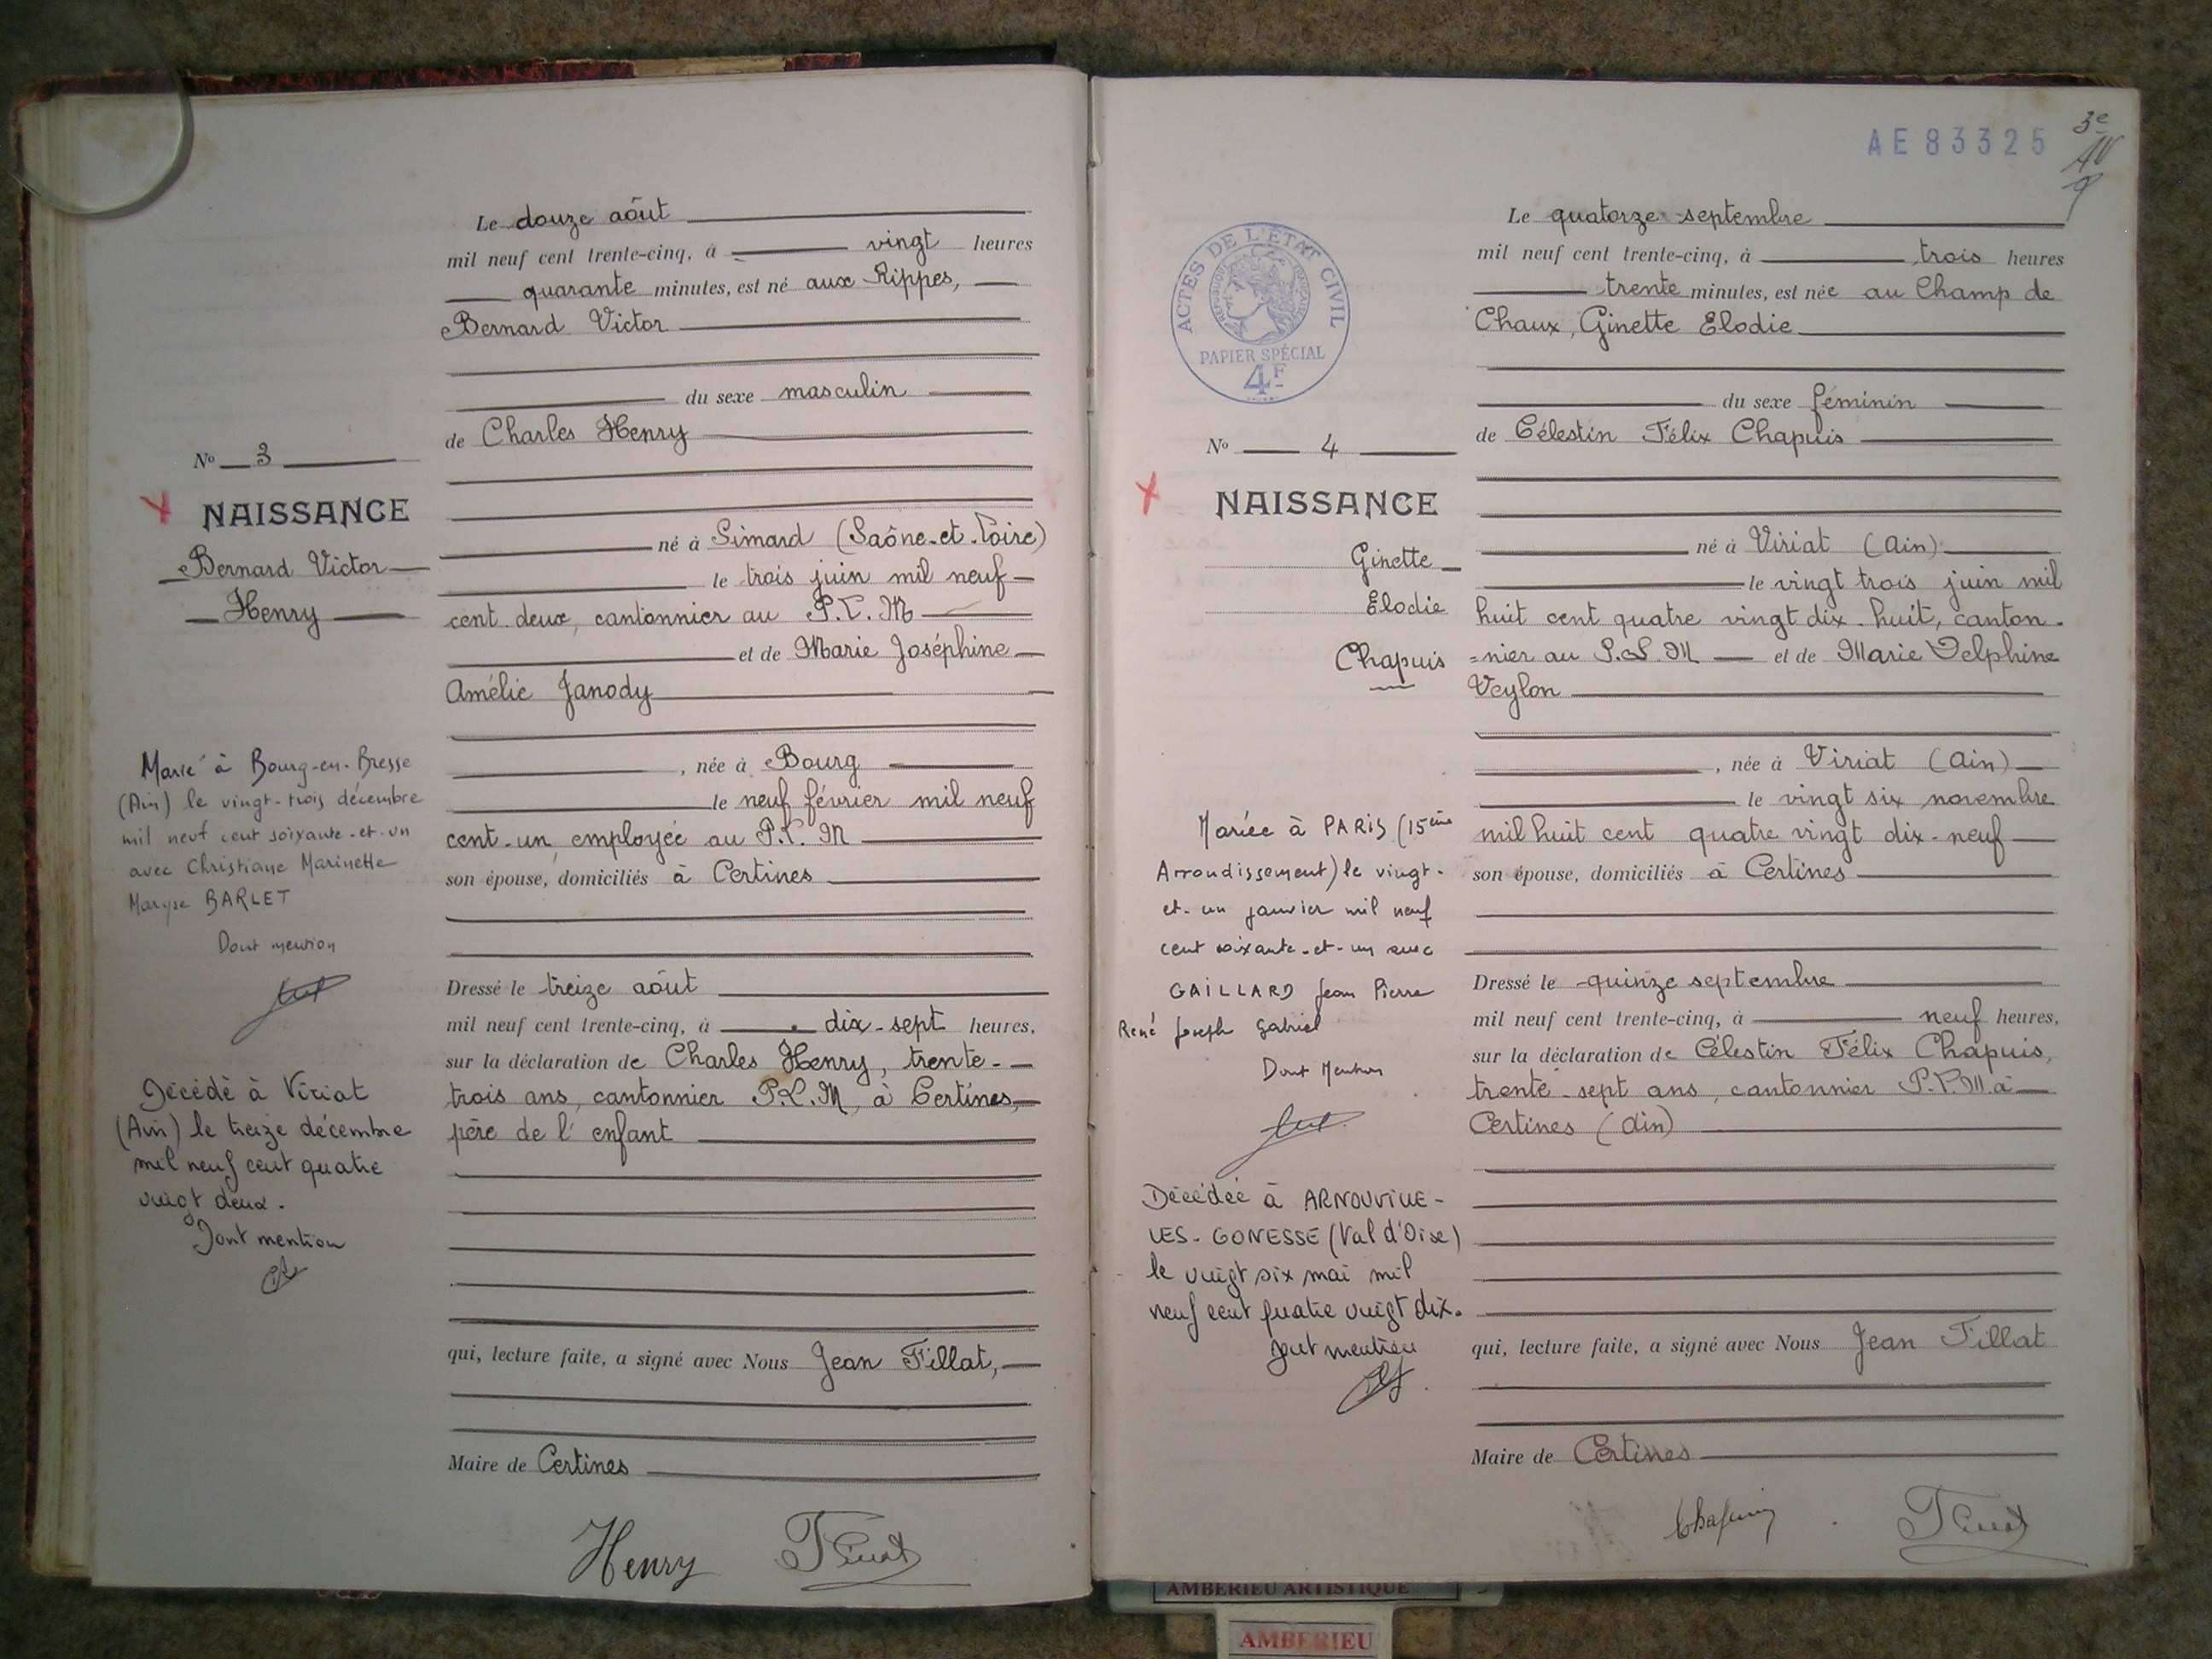 Le douze août
mil neuf cent trente-cinq, à vingt heures
quarante minutes, est né aux Rippes,
Bernard Victor
du sexe masculin
de Charles Henry
No 3
NAISSANCE
Bernard Victor
Henry
né à Simard (Saône-et-Loire)
le trois juin mil neuf
cent deux, cantonnier au P.L.M
et de Marie Joséphine
Amélie Janody
, née à Bourg
le neuf février mil neuf
cent-un, employée au P.L.M
son épouse, domiciliés à Certines
Marié à Bourg-en-Bresse
(Ain) le vingt-trois décembre
mil neuf cent soixante-et-un
avec Christiane Marinette
Maryse BARLET
Dont mention
Dressé le treize août
mil neuf cent trente-cinq, à dix-sept heures,
sur la déclaration de Charles Henry, trente-
trois ans, cantonnier P.L.M, à Certines,
père de l'enfant
Décédé à Viriat
(Ain) le treize décembre
mil neuf cent quatre
vingt deux.
Dont mention
qui, lecture faite, a signé avec Nous Jean Tillat,
Maire de Certines
Henry
AE83325
3e
Le quatorze septembre
mil neuf cent trente-cinq, à trois heures
trente minutes, est née au Champ de
Chaux, Ginette Elodie
ACTES DE L'ÉTAT CIVIL
RÉPUBLIQUE FRANÇAISE
PAPIER SPÉCIAL
4F
du sexe féminin
de Célestin Félix Chapuis
No 4
NAISSANCE
Ginette
Elodie
Chapuis
né à Viriat (Ain)
le vingt trois juin mil
huit cent quatre vingt dix-huit, canton-
=nier au P.L.M et de Marie Delphine
Veylon
, née à Viriat (Ain)
le vingt six novembre
mil huit cent quatre vingt dix-neuf
son épouse, domiciliés à Certines
Mariée à PARIS (15ème
Arrondissement) le vingt-
et-un janvier mil neuf
cent soixante-et-un avec
GAILLARD Jean Pierre
René Joseph Gabriel
Dont Mention
Dressé le quinze septembre
mil neuf cent trente-cinq, à neuf heures,
sur la déclaration de Célestin Félix Chapuis,
trente-sept ans, cantonnier P.L.M. à
Certines (Ain)
Décédée à ARNOUVILLE-
LES-GONESSE (Val d'Oise)
le vingt six mai mil
neuf cent quatre vingt dix.
Dont mention
qui, lecture faite, a signé avec Nous Jean Tillat
Maire de Certines
Chapuis
AMBERIEU ARTISTIQUE
AMBERIEU